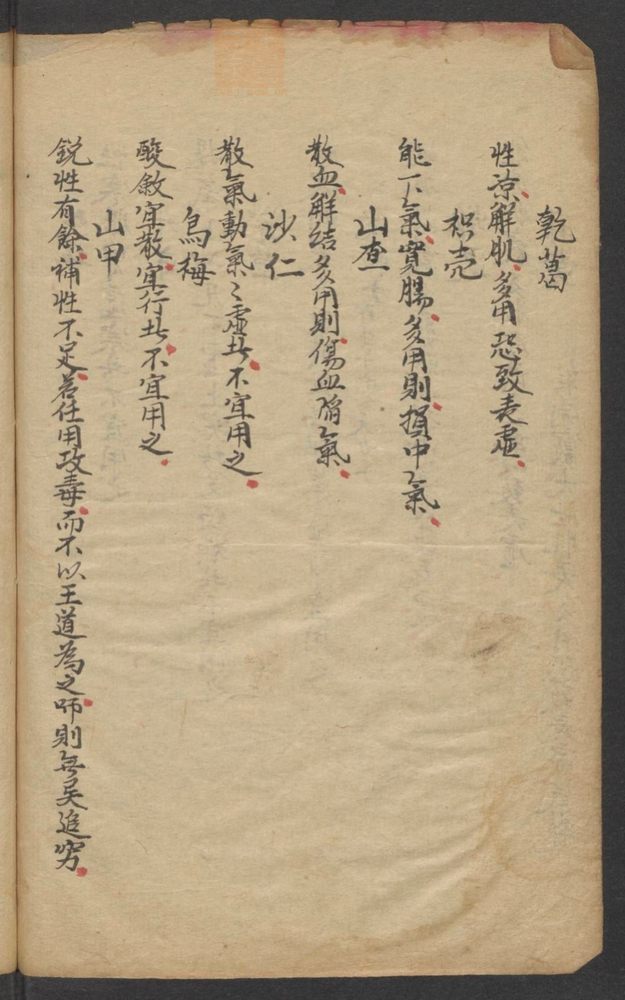 乾葛
性涼解肌多用恐致表虛
枳壳
能下氣寬腸多用則損中氣
山查
散血解结多用則傷血脫氣
沙仁
散氣動氣〻虛者不宜用之
烏梅
酸斂宜散宜行者不宜用之
山甲
銳性有餘補性不足若任用攻毒而不以王道為之師則無異追窮